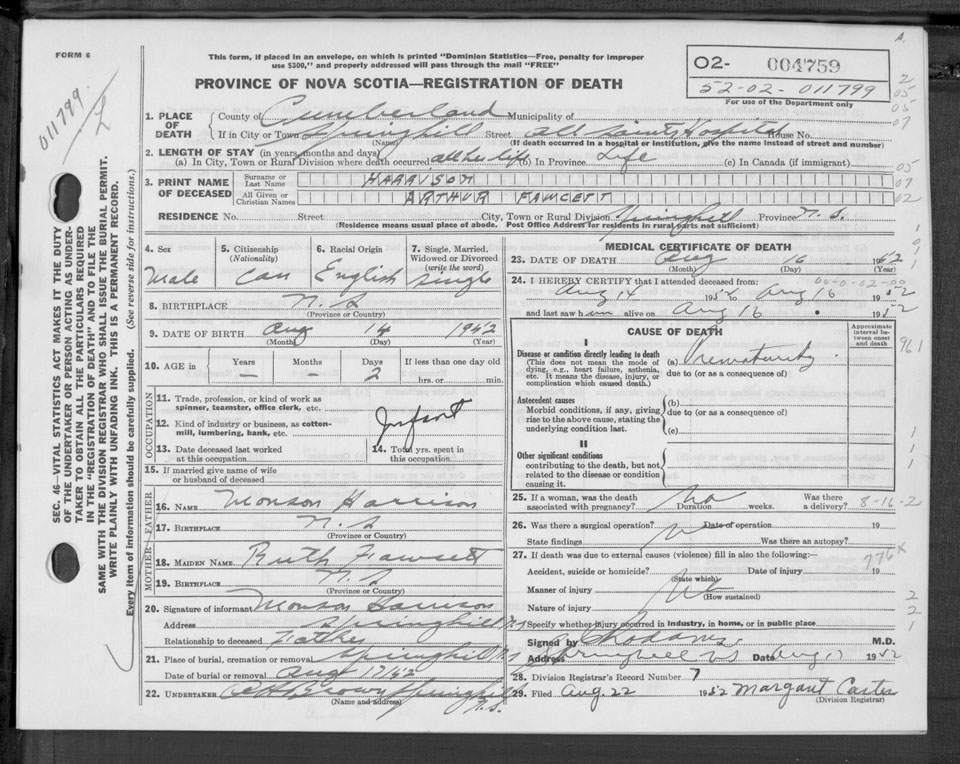 A.
FORM 6
This form, if placed in an envelope, on which is printed "Dominion Statistics—Free, penalty for improper
use $300," and properly addressed will pass through the mail "FREE"
PROVINCE OF NOVA SCOTIA—REGISTRATION OF DEATH
02- 004759
52-02-011799
For use of the Department only
011799
SEC. 46—VITAL STATISTICS ACT MAKES IT THE DUTY
OF THE UNDERTAKER OR PERSON ACTING AS UNDER-
TAKER TO OBTAIN ALL THE PARTICULARS REQUIRED
IN THE "REGISTRATION OF DEATH" AND TO FILE THE
SAME WITH THE DIVISION REGISTRAR WHO SHALL ISSUE THE BURIAL PERMIT.
WRITE PLAINLY WITH UNFADING INK. THIS IS A PERMANENT RECORD.
Every item of information should be carefully supplied. (See reverse side for instructions.)
1. PLACE OF DEATH
County of Cumberland Municipality of
If in City or Town Springhill Street All Saints Hospital House No.
(Name) (If death occurred in a hospital or institution, give the name instead of street and number)
2. LENGTH OF STAY (in years, months and days)
(a) In City, Town or Rural Division where death occurred all his life (b) In Province Life (c) In Canada (if immigrant)
3. PRINT NAME OF DECEASED
Surname or Last Name HARRISON
All Given or Christian Names ARTHUR FAWCETT
RESIDENCE No. Street City, Town or Rural Division Springhill Province N.S.
(Residence means usual place of abode. Post Office Address for residents in rural parts not sufficient)
4. Sex
Male
5. Citizenship
(Nationality)
Can
6. Racial Origin
English
7. Single, Married,
Widowed or Divorced
(write the word)
Single
8. BIRTHPLACE N.S.
(Province or Country)
9. DATE OF BIRTH Aug 14 1952
(Month) (Day) (Year)
10. AGE in
Years Months Days If less than one day old
— — 2 hrs. or min.
OCCUPATION
11. Trade, profession, or kind of work as
spinner, teamster, office clerk, etc.
12. Kind of industry or business, as cotton-
mill, lumbering, bank, etc.
Infant
13. Date deceased last worked
at this occupation
14. Total yrs. spent in
this occupation
15. If married give name of wife
or husband of deceased
FATHER
16. NAME Monson Harrison
17. BIRTHPLACE N.S
(Province or Country)
MOTHER
18. MAIDEN NAME Ruth Fawcett
19. BIRTHPLACE N.S
(Province or Country)
20. Signature of informant Monson Harrison
Address Springhill N.S
Relationship to deceased Father
21. Place of burial, cremation or removal Springhill N.S
Date of burial or removal Aug 17/52
22. UNDERTAKER Brown Springhill
(Name and Address)
N.S.
MEDICAL CERTIFICATE OF DEATH
23. DATE OF DEATH Aug 16 1952
(Month) (Day) (Year)
24. I HEREBY CERTIFY that I attended deceased from:
Aug 14 1952 to Aug 16 1952
and last saw him alive on Aug 16 1952
CAUSE OF DEATH
Approximate
interval be-
tween onset
and death
I
Disease or condition directly leading to death
(This does not mean the mode of
dying, e.g., heart failure, asthenia,
etc. It means the disease, injury, or
complication which caused death.)
(a) Prematurity
due to (or as a consequence of)
Antecedent causes
Morbid conditions, if any, giving
rise to the above cause, stating the
underlying condition last.
(b)
due to (or as a consequence of)
(c)
II
Other significant conditions
contributing to the death, but not
related to the disease or condition
causing it.
25. If a woman, was the death
associated with pregnancy? No Duration weeks. Was there
a delivery? 8-16-2
26. Was there a surgical operation? Date of operation 19
State findings Was there an autopsy?
27. If death was due to external causes (violence) fill in also the following:—
776x
Accident, suicide or homicide? Date of injury 19
(State which)
Manner of injury
(How sustained)
Nature of injury
Specify whether injury occurred in industry, in home, or in public place
Signed by M.D.
Address Springhill NS Date Aug 17 1952
28. Division Registrar's Record Number 7
29. Filed Aug. 22 1952 Margaret Carter
(Division Registrar)